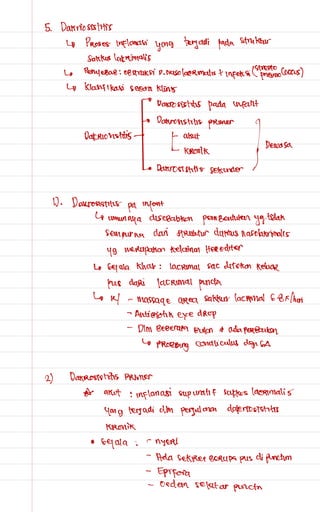 5. Dakriosistitis
↳ Proses inflamasi yang terjadi pada struktur
sakkus lakrimalis
↳ Penyebab: obstruksi D. nasolacrimalis + infeksi (strepto pneumo coccus)
↳ Klasifikasi secara klinis
Dakriosistitis
Dakriosistitis pada infant
Dakriosistitis primer
- akut
- kronik
Dakriosistitis sekunder
Dewasa
1). Dakriosistitis pd infant
↳ umumnya disebabkan pembentukan yg tidak
sempurna dari struktur duktus nasolakrimalis
yg merupakan kelainan herediter
↳ Gejala khas: lacrimal sac ditekan keluar
pus dari lacrimal punctum
↳ R/ - massage area sakkus lacrimal 6-8x/hari
- Antibiotik eye drop
- Dlm beberapa bulan ≠ ada perbaikan
↳ probing canaliculus dgn GA
2) Dakriosistitis primer
akut : inflamasi supuratif sakkus lacrimalis
yang terjadi dlm perjalanan dakriosistitis
kronik
• Gejala : - nyeri
- Ada sekret berupa pus di punctum
- Epifora
- oedem sekitar punctum